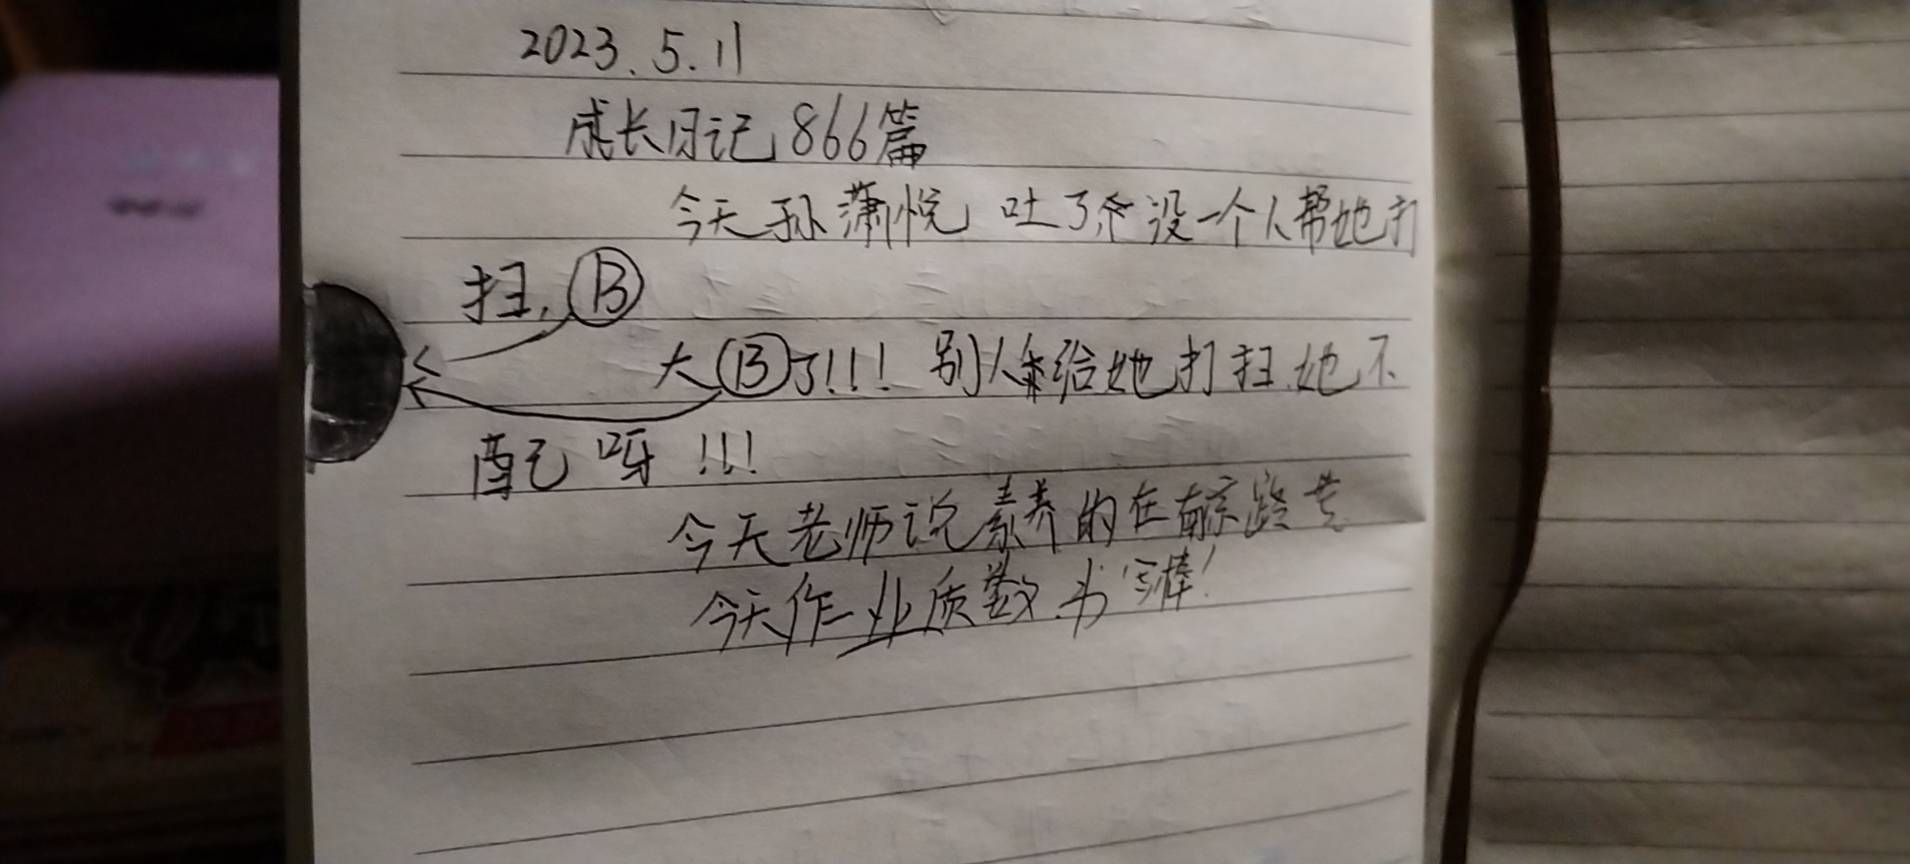 2023.5.11
成长日记866篇
今天孙潇悦吐了 没一个人帮她打
扫,B
大B了!!!别人来给她打扫她不
配呀!!!
今天老师说素养的在
今天作业质数书写棒!